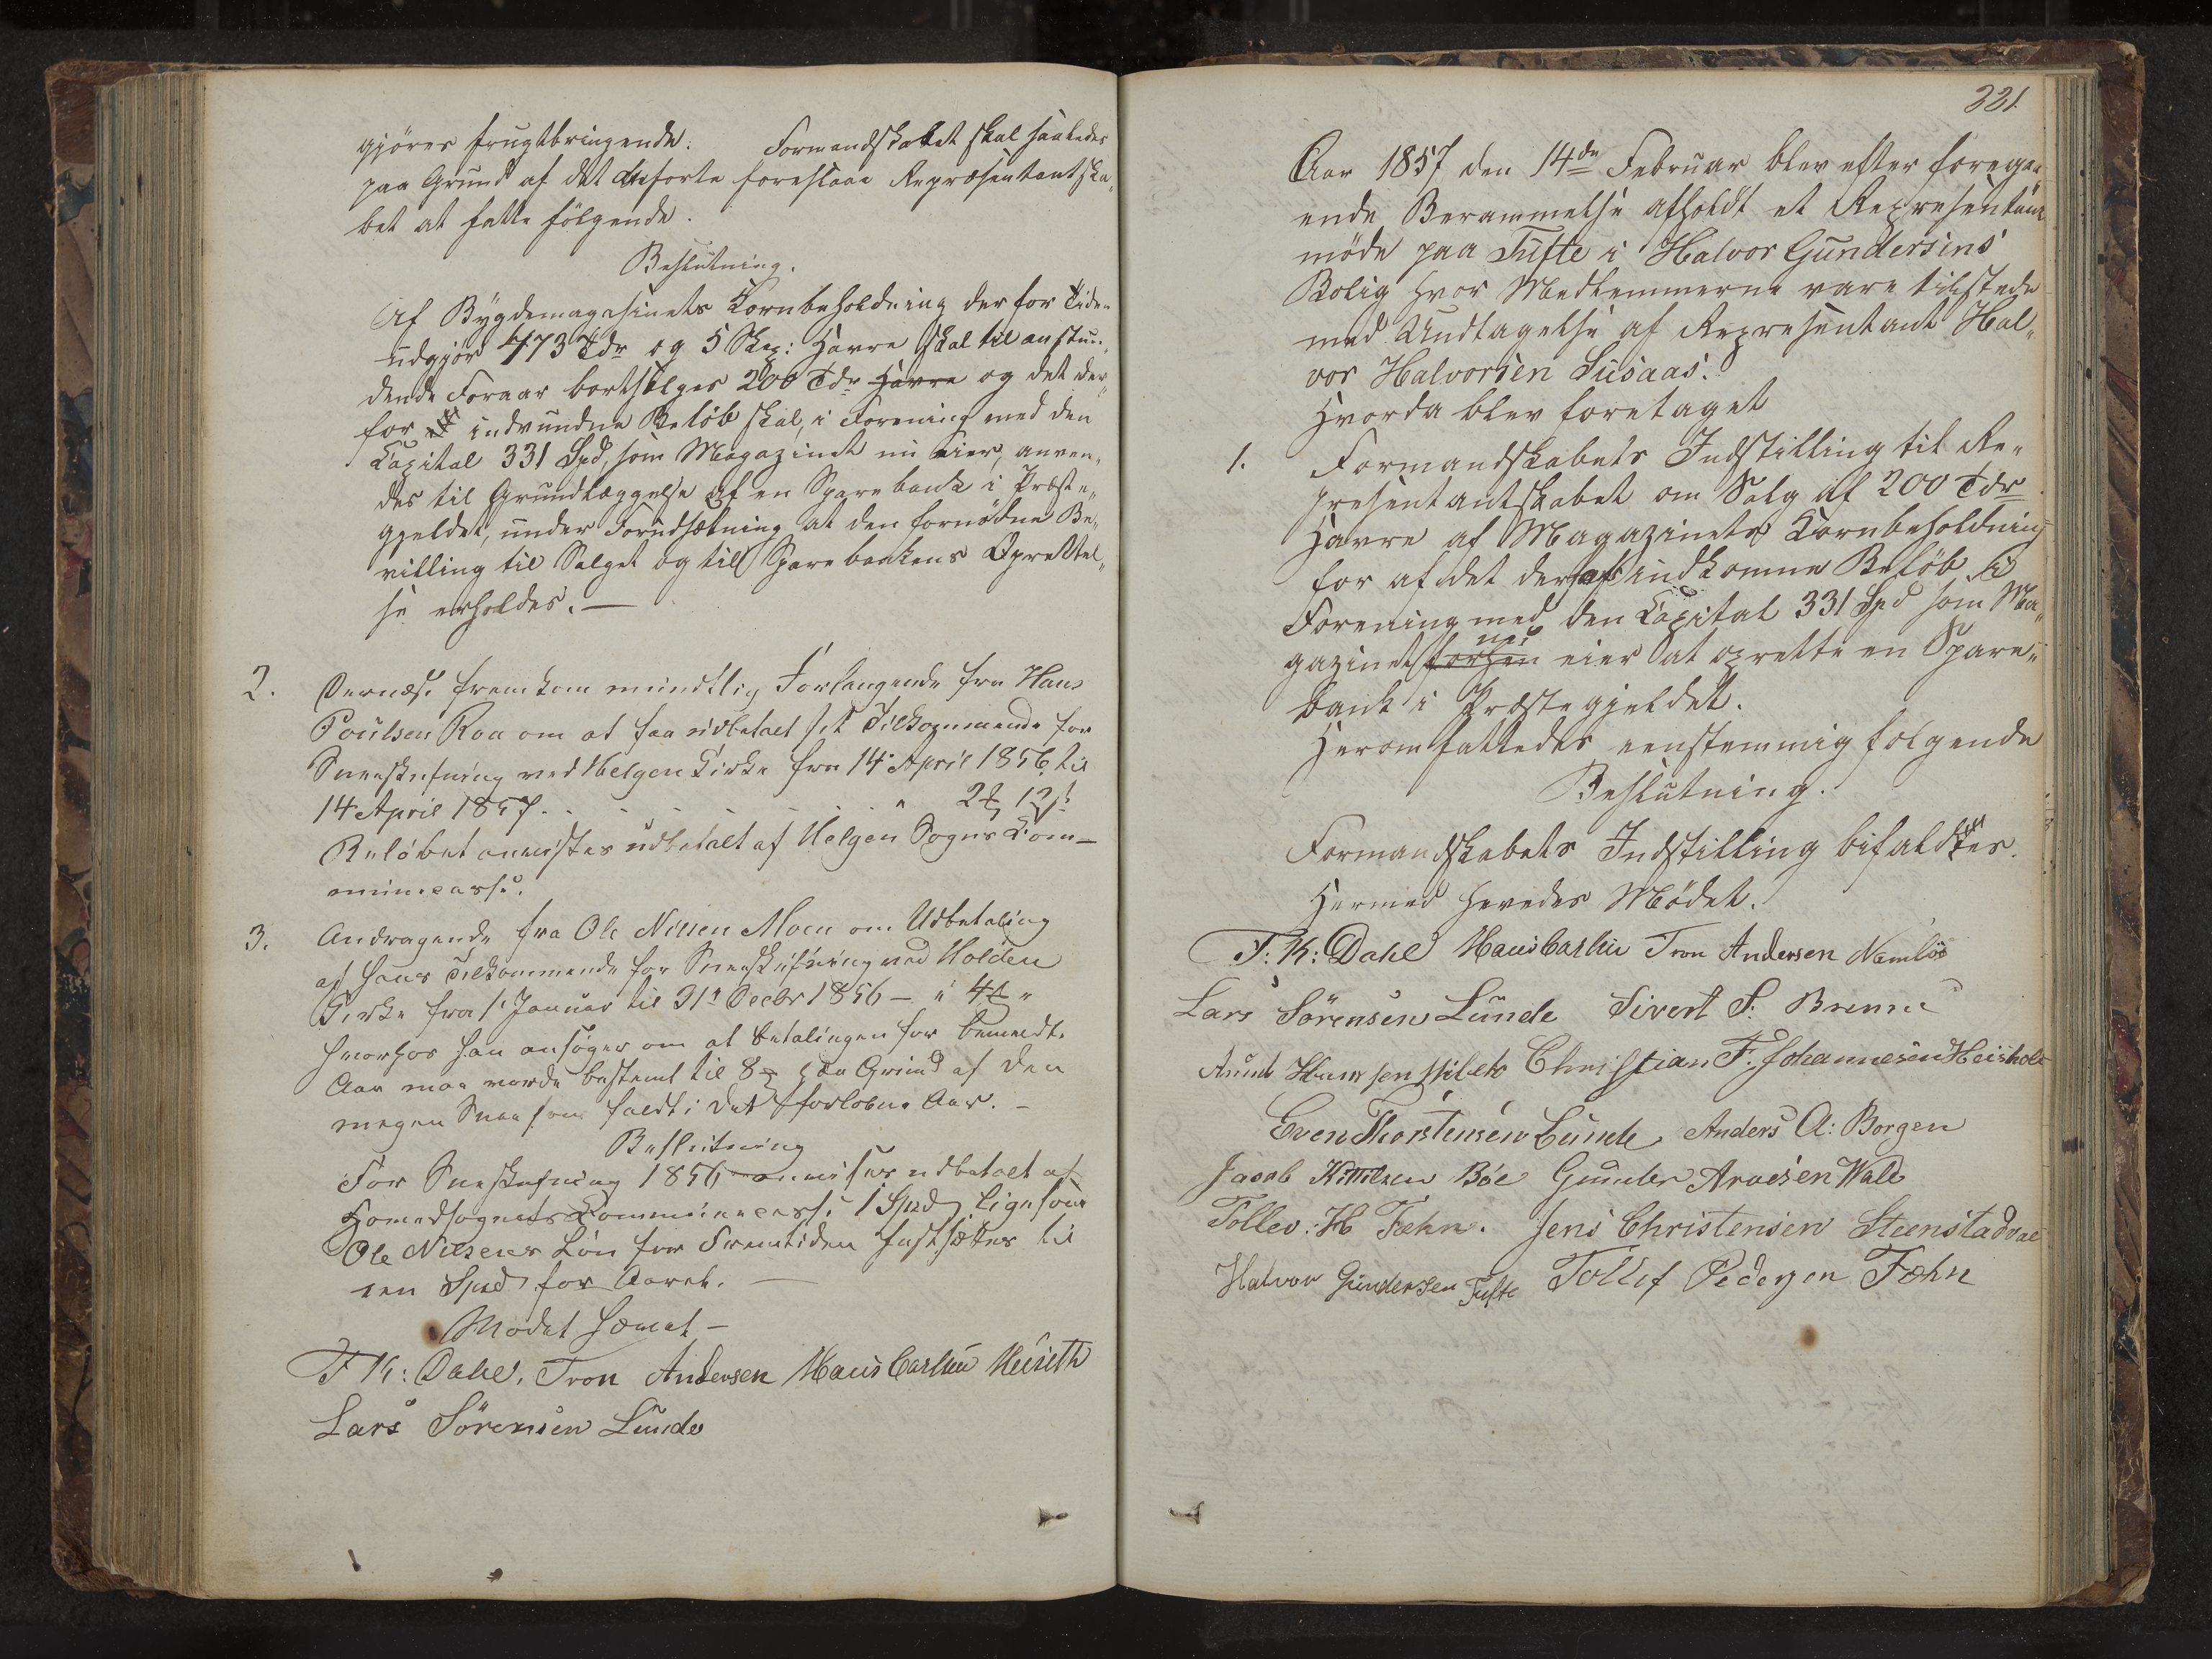 gjöres frugtbringende. Formandskabet skal saaledes
paa Grund af det Anforte foreslaae Repræsentantska„
bet at fatte fölgende.
Beslutning.
Af Bÿgdemagasinets Kornbeholdning der for Tiden
udgjör 473 Tdr og 5 Skp: Havre skal tilanstun„
dende Foraar bortsælges 200 Tdr Havre og det der„
for indvundne Belöb skal, i Forening med den
Capital 331 Spd, som Magazinet nu eier, anven„
des til Grundlæggelse af en Sparebank i Præste„
gjeldet, under Forudsætning at den fornödne Be„
villing til Salget og till Sparebankens Oprettel„
se erholdes. —
2. Dernæst fremkom mundtlig Forlangende fra Hans
Poulsen Roa om at faa udbetalt sit Tilkommende for
Sneeskufning ved Helgen Kirke fra 14 April 1856 til
14 April 1857.
Belöbet anvistes udbetalt af Helgen Sogns Com-
munecasse.
3. Andragende fra Ole Nilsen Moen om Udbetaling
af hans Tilkommende for Sneeskufning ved Holden
Kirke fra 1 Januar til 31t Decbr 1856 –
hvorhos han ansöger om at betalingen for bemeldte
Aar maa vorde bestemt til 8 paa Grund af den
megen Snee som faldt i det forlobne Aar. –
Beslutning
For Sneskufning 1856 anvises udbetalt af
Hovedsognets Communecasse 1 Spd ligesom
Ole Nilsens Lön for Fremtiden fastsættes til
een Spd for Aaret. —
Mödet hævet –
F K: Dahl. Tron Andersen Hans Carlsen
Lars Sörensen Lunde
331.
Aar 1857 den 14de Februar blev efter forega„
ende Berammelse afholdt et Representant
möde paa Tufte i Halvor Gundersens
Bolig hvor Medlemmerne vare tilstede
med Undtagelse af Representant Hal„
vor Halvorsen Susaas.
Hvorda blev foretaget
1. Formandskabets Indstilling til Re„
presentantskabet om Salg af 200 Tdr
Havre af Magazinets Kornbeholdning
for af det deraf indkomne Belöb i
Forening med den Capital 331 Spd som Ma„
gazinet forhen nu eier at oprette en Spare„
bank i Præstegjeldet.
Herom fattedes eenstemmig folgende
Beslutning.
Formandskabets Indstilling bifaldtes.
Hermed hevedes Mödet.
F: K: Dahl Hans Carlsen Tron Andersen Namlös
Lars Sörensen Lunde Sivert S: Brenne
Hansen Christian F. Johannesen
Even Thorstensen Lunde. Anders A: Borgen
Jacob Kittilsen Böe Gunder Aroesen Wale
Tollev: H Fæhn. Jens Christensen
Halvor Gundersen Tufte Tollef Pedersen Fæhn